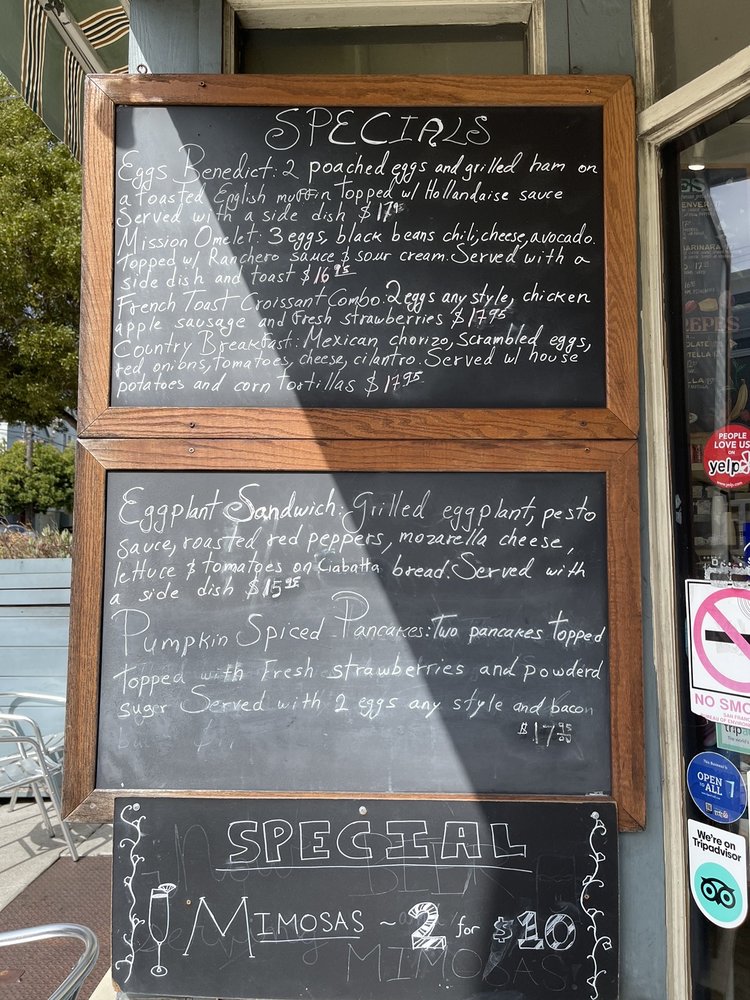 SPECIALS
Eggs Benedict: 2 poached eggs and grilled ham on
a toasted English muffin topped w/ Hollandaise sauce
Served with a side dish $17.95
Mission Omelet: 3 eggs, black beans chili, cheese, avocado.
Topped w/ Ranchero sauce & sour cream. Served with a
side dish and toast $16.95
French Toast Croissant Combo: 2 eggs any style, chicken
apple sausage and fresh strawberries $17.95
Country Breakfast: Mexican chorizo, Scrambled eggs,
red, onions, tomatoes, cheese, cilantro. Served w/ house
potatoes and corn tortillas $17.95
Eggplant Sandwich: Grilled eggplant, pesto
sauce, roasted red peppers, mozarella cheese,
lettuce & tomatoes on Ciabatta bread. Served with
a side dish $15.95
Pumpkin Spiced Pancakes: Two pancakes topped
topped with Fresh strawberries and powderd
suger Served with 2 eggs any style and bacon
$17.95
SPECIAL
MIMOSAS ~ 2 for $10
MIMOSAS
PEOPLE
LOVE US
ON
yelp
www.yelp.com
NO SMO
SAN FRANC
BUREAU OF ENVIRONMEN
trip
This Business is
OPEN
to ALL
We're on
Tripadvisor